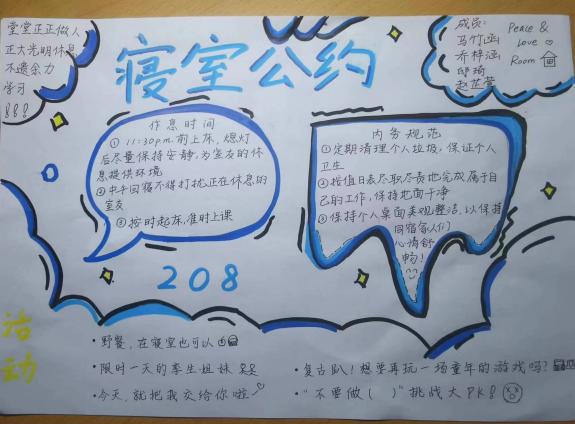 堂堂正正做人
正大光明休息
不遗余力
学习
!!!
寝室公约
成员:
马竹函
乔梓涵
邱琦
赵芷萱
Peace &
Love
Room
作息时间
①11:30p.m.前上床,熄灯
后尽量保持安静,为室友的休
息提供环境
②中午回宿不得打扰正在休息的
室友
③按时起床,准时上课
内务规范
①定期清理个人垃圾,保证个人
卫生
②按值日表尽职尽责地完成属于自
己的工作,保持地面干净
③保持个人桌面美观整洁,以保持
同宿客人们
心情舒
畅!
208
活动
•野餐,在寝室也可以
•限时一天的孪生姐妹
•今天,就把我交给你啦
•复古趴!想要再玩一场童年的游戏吗?
•"不要做( )"挑战大PK!